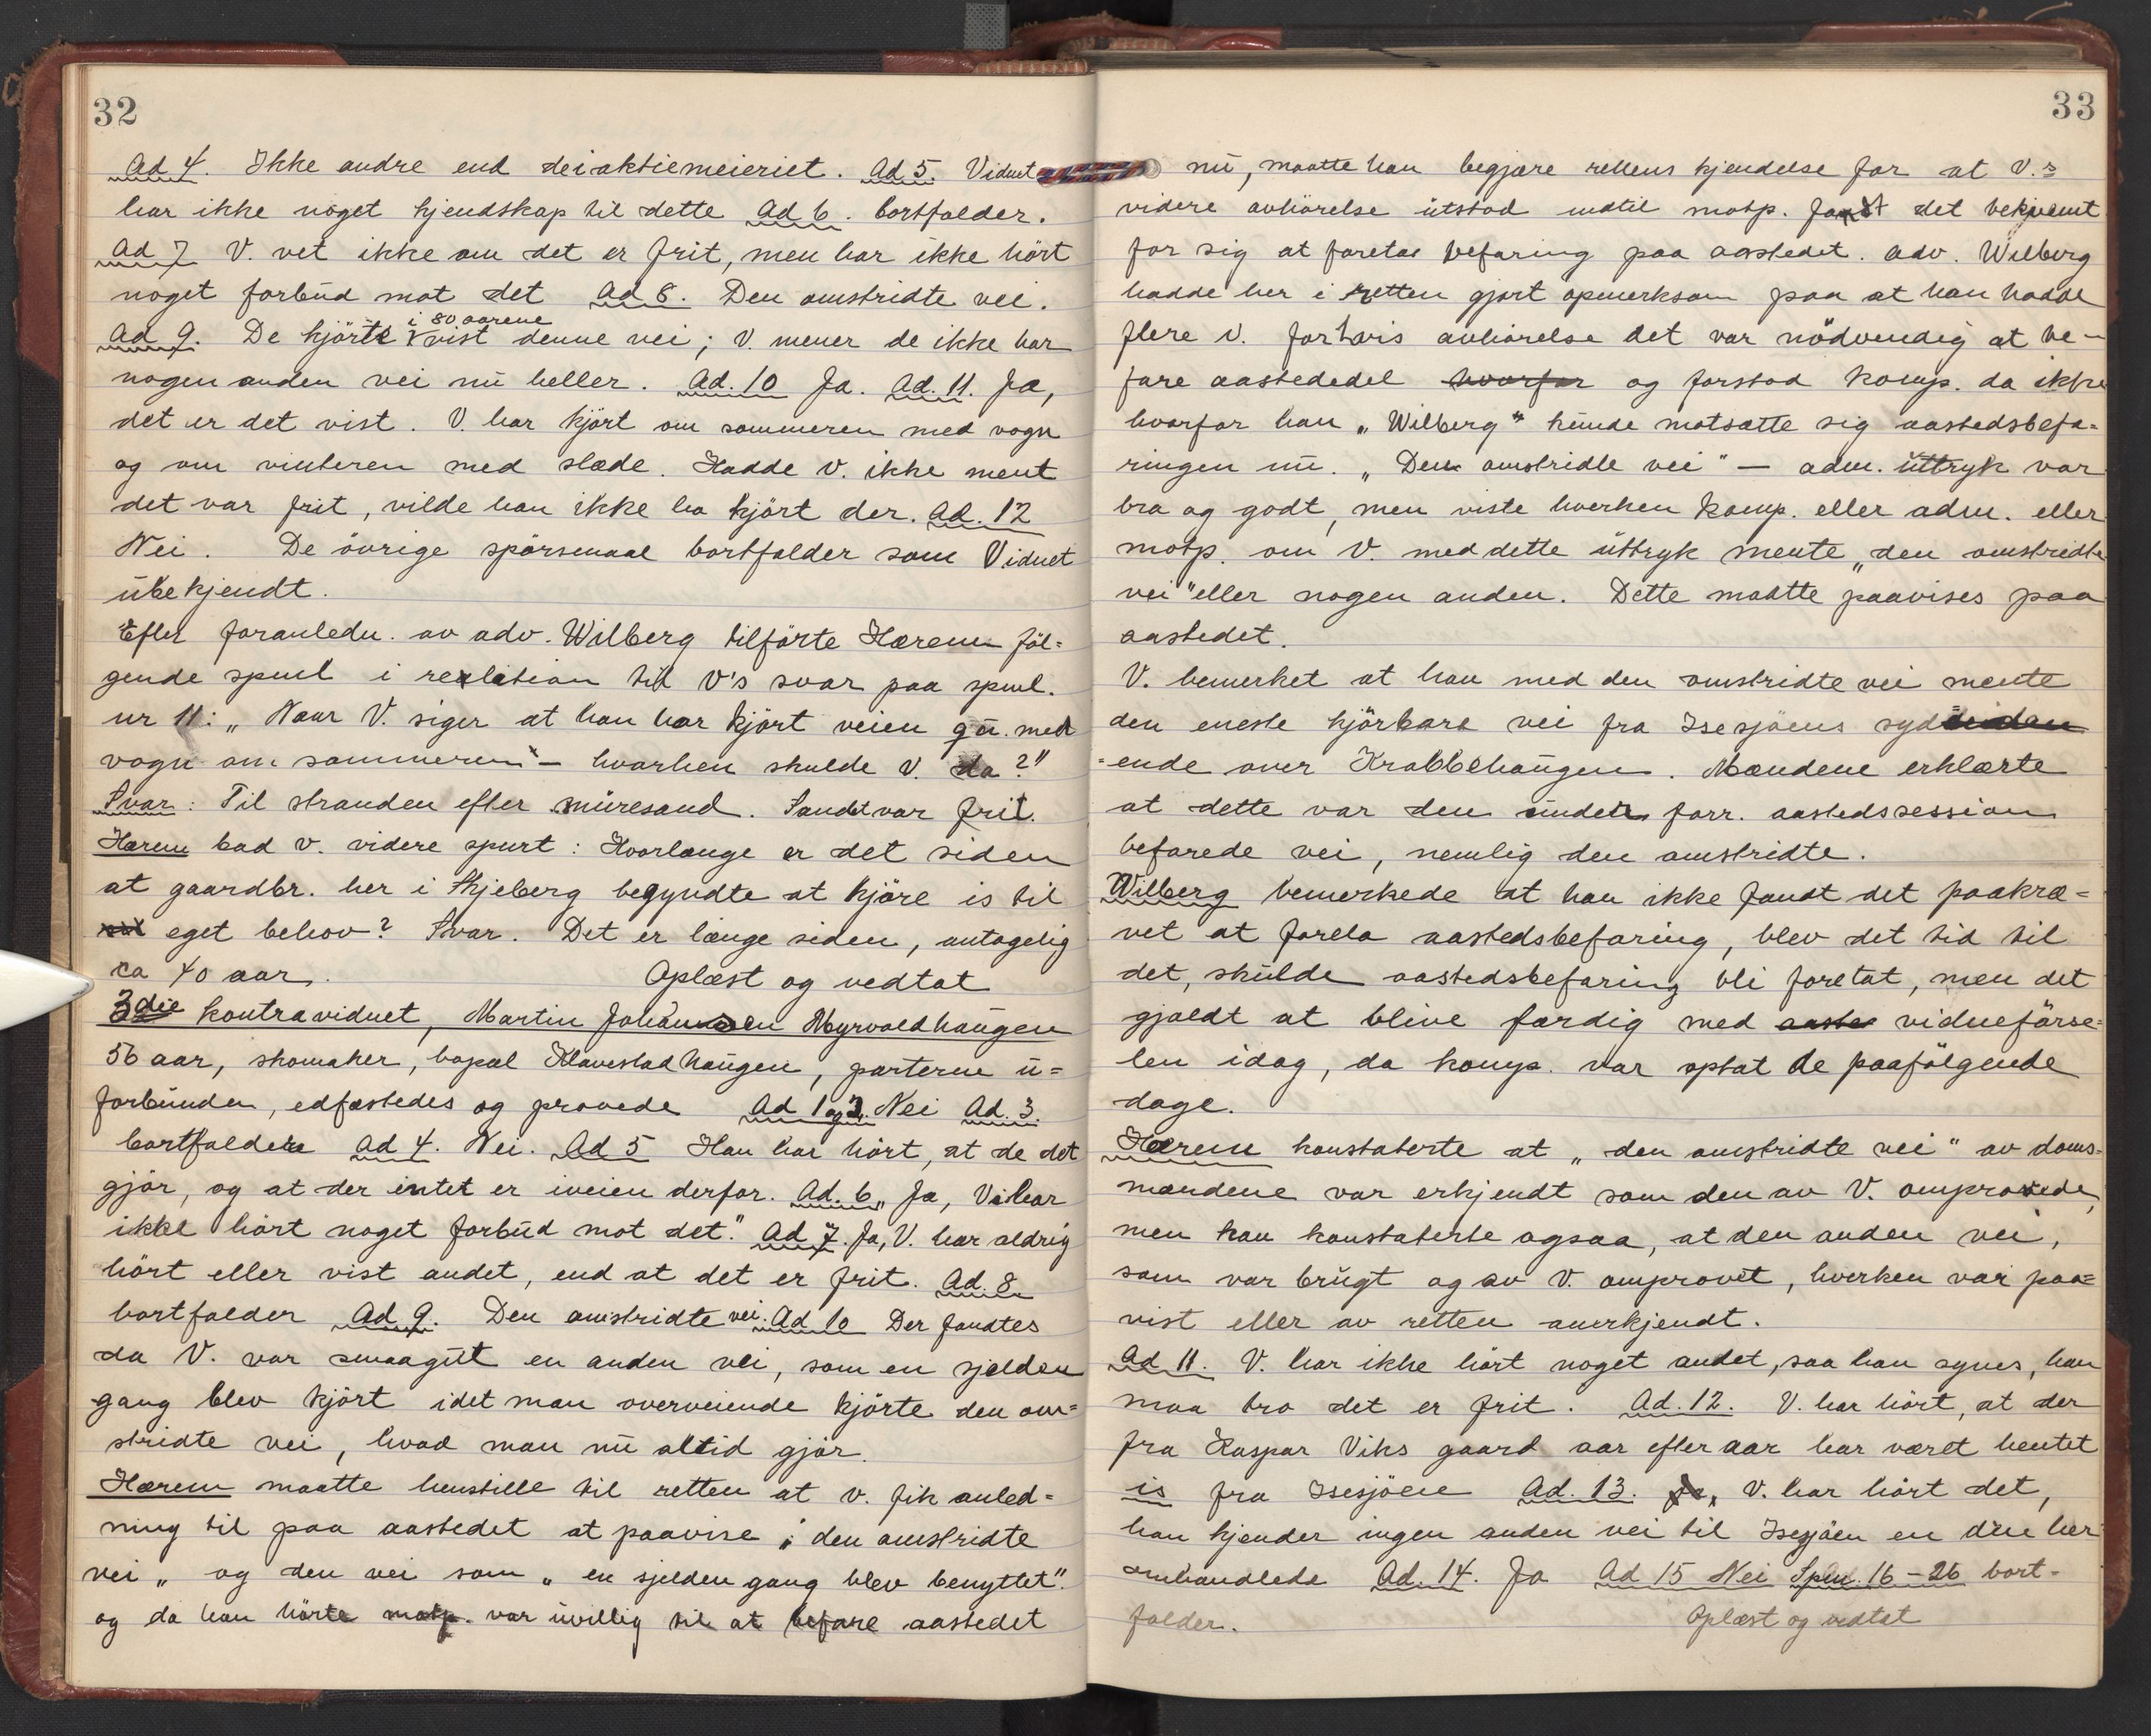 32
Ad 4. Ikke andre end deiaktiemeieriet. Ad 5. Vidnet
har ikke noget kjendskap til dette Ad 6. bortfalder.
Ad 7 V. vet ikke om det er frit, men har ikke hört
noget forbud mot det Ad 8. Den omstridte vei.
i 80 aarene
Ad 9. De kjörte vist denne vei; V. mener de ikke har
nogen anden vei nu heller. Ad. 10 Ja. Ad. 11. Ja,
det er det vist. V. har kjört om sommeren med vogn
og om vinteren med slæde. Hadde V. ikke ment
det var frit, vilde han ikke ha kjört der. Ad. 12
Nei. De övrige spörsmaal bortfalder som Vidnet
ubekjendt.
Efter foranledn. av adv. Wilberg tilförte Hærem föl=
gende spml i relation til V's svar paa spml.
nr 11: „Naar V. siger at han har kjört veien gu. med
vogn om sommeren" – hvorhen skulde V. da?"
Svar: Til stranden efter muresand. Sandet var frit.
Hærem bad V. videre spurt: Hvorlænge er det siden
at gaardbr. her i Skjeberg begyndte at kjöre is til
eget behov? Svar. Det er længe siden, antagelig
ca 40 aar. Oplæst og vedtat
3die kontravidnet, Martin Johannsen Myrvoldhaugen
56 aar, skomaker, bopæl Klavestadhaugen, parterne u=
forbunden, edfæstedes og provede Ad 1 og 2. Nei Ad. 3.
bortfalder Ad 4. Nei. Ad 5 Han har hört, at de det
gjör, og at der intet er iveien derfor. Ad. 6 „Ja, Vi har
ikke hört noget forbud mot det." Ad 7. Ja, V. har aldrig
hört eller vist andet, end at det er frit. Ad. 8
bortfalder Ad 9. Den omstridte vei. Ad 10 Der fandtes
da V. var smaagut en anden vei, som en sjelden
gang blev kjört idet man overveiende kjörte den om=
stridte vei, hvad man nu altid gjör.
Hærem maatte henstille til retten at V. fik anled=
ning til paa aastedet at paavise „den omstridte
vei„ og den vei som „en sjelden gang blev benyttet".
og da han hörte motp. var uvillig til at befare aastedet
33
nu, maatte han begjære rettens kjendelse for at V.s
videre avhörelse utstod indtil motp. fandt det bekjvemt
for sig at foretas befaring paa aastedet. adv. Wilberg
hadde her i retten gjort opmerksom paa at han hadde
flere V. for hvis avhörelse det var nödvendig at be-
fare aastededel hvorfor og forstod komp. da ikke
hvorfor han „Wilberg" kunde motsætte sig aastedsbefa=
ringen nu. „Den omstridte vei" – adm. uttryk var
bra og godt, men viste hverken komp. eller adm. eller
motp. om V. med dette uttryk mente „den omstridte
vei" eller nogen anden. Dette maatte paavises paa
aastedet.
V. bemerket at han med den omstridte vei mente
den eneste kjörbare vei fra Isesjöens syd
=ende over Krabbehaugen. Mændene erklærte
at dette var den under forr. aastedssession
befarede vei, nemlig den omstridte.
Wilberg bemerkede at han ikke fandt det paakræ=
vet at foreta aastedsbefaring, blev det tid til
det, skulde aastedsbefaring bli foretat, men det
gjaldt at blive færdig med aaste vidneförse=
len idag, da komp. var optat de paafölgende
dage.
Hærem konstaterte at „den omstridte vei" av doms=
mændene var erkjendt som den av V. omprovede,
men han konstaterte ogsaa, at den anden vei,
som var brugt og av V. omprovet, hverken var paa=
vist eller av retten anerkjendt.
Ad 11. V. har ikke hört noget andet, saa han synes, han
maa tro det er frit. Ad. 12. V. har hört, at der
fra Kaspar Viks gaard aar efter aar har været hentet
is fra Isesjöen Ad. 13. Ja, V. har hört det,
han kjender ingen anden vei til Isesjöen en den her
omhandlede Ad. 14. Ja Ad 15 Nei Spm. 16–26 bort-
falder. Oplæst og vedtat